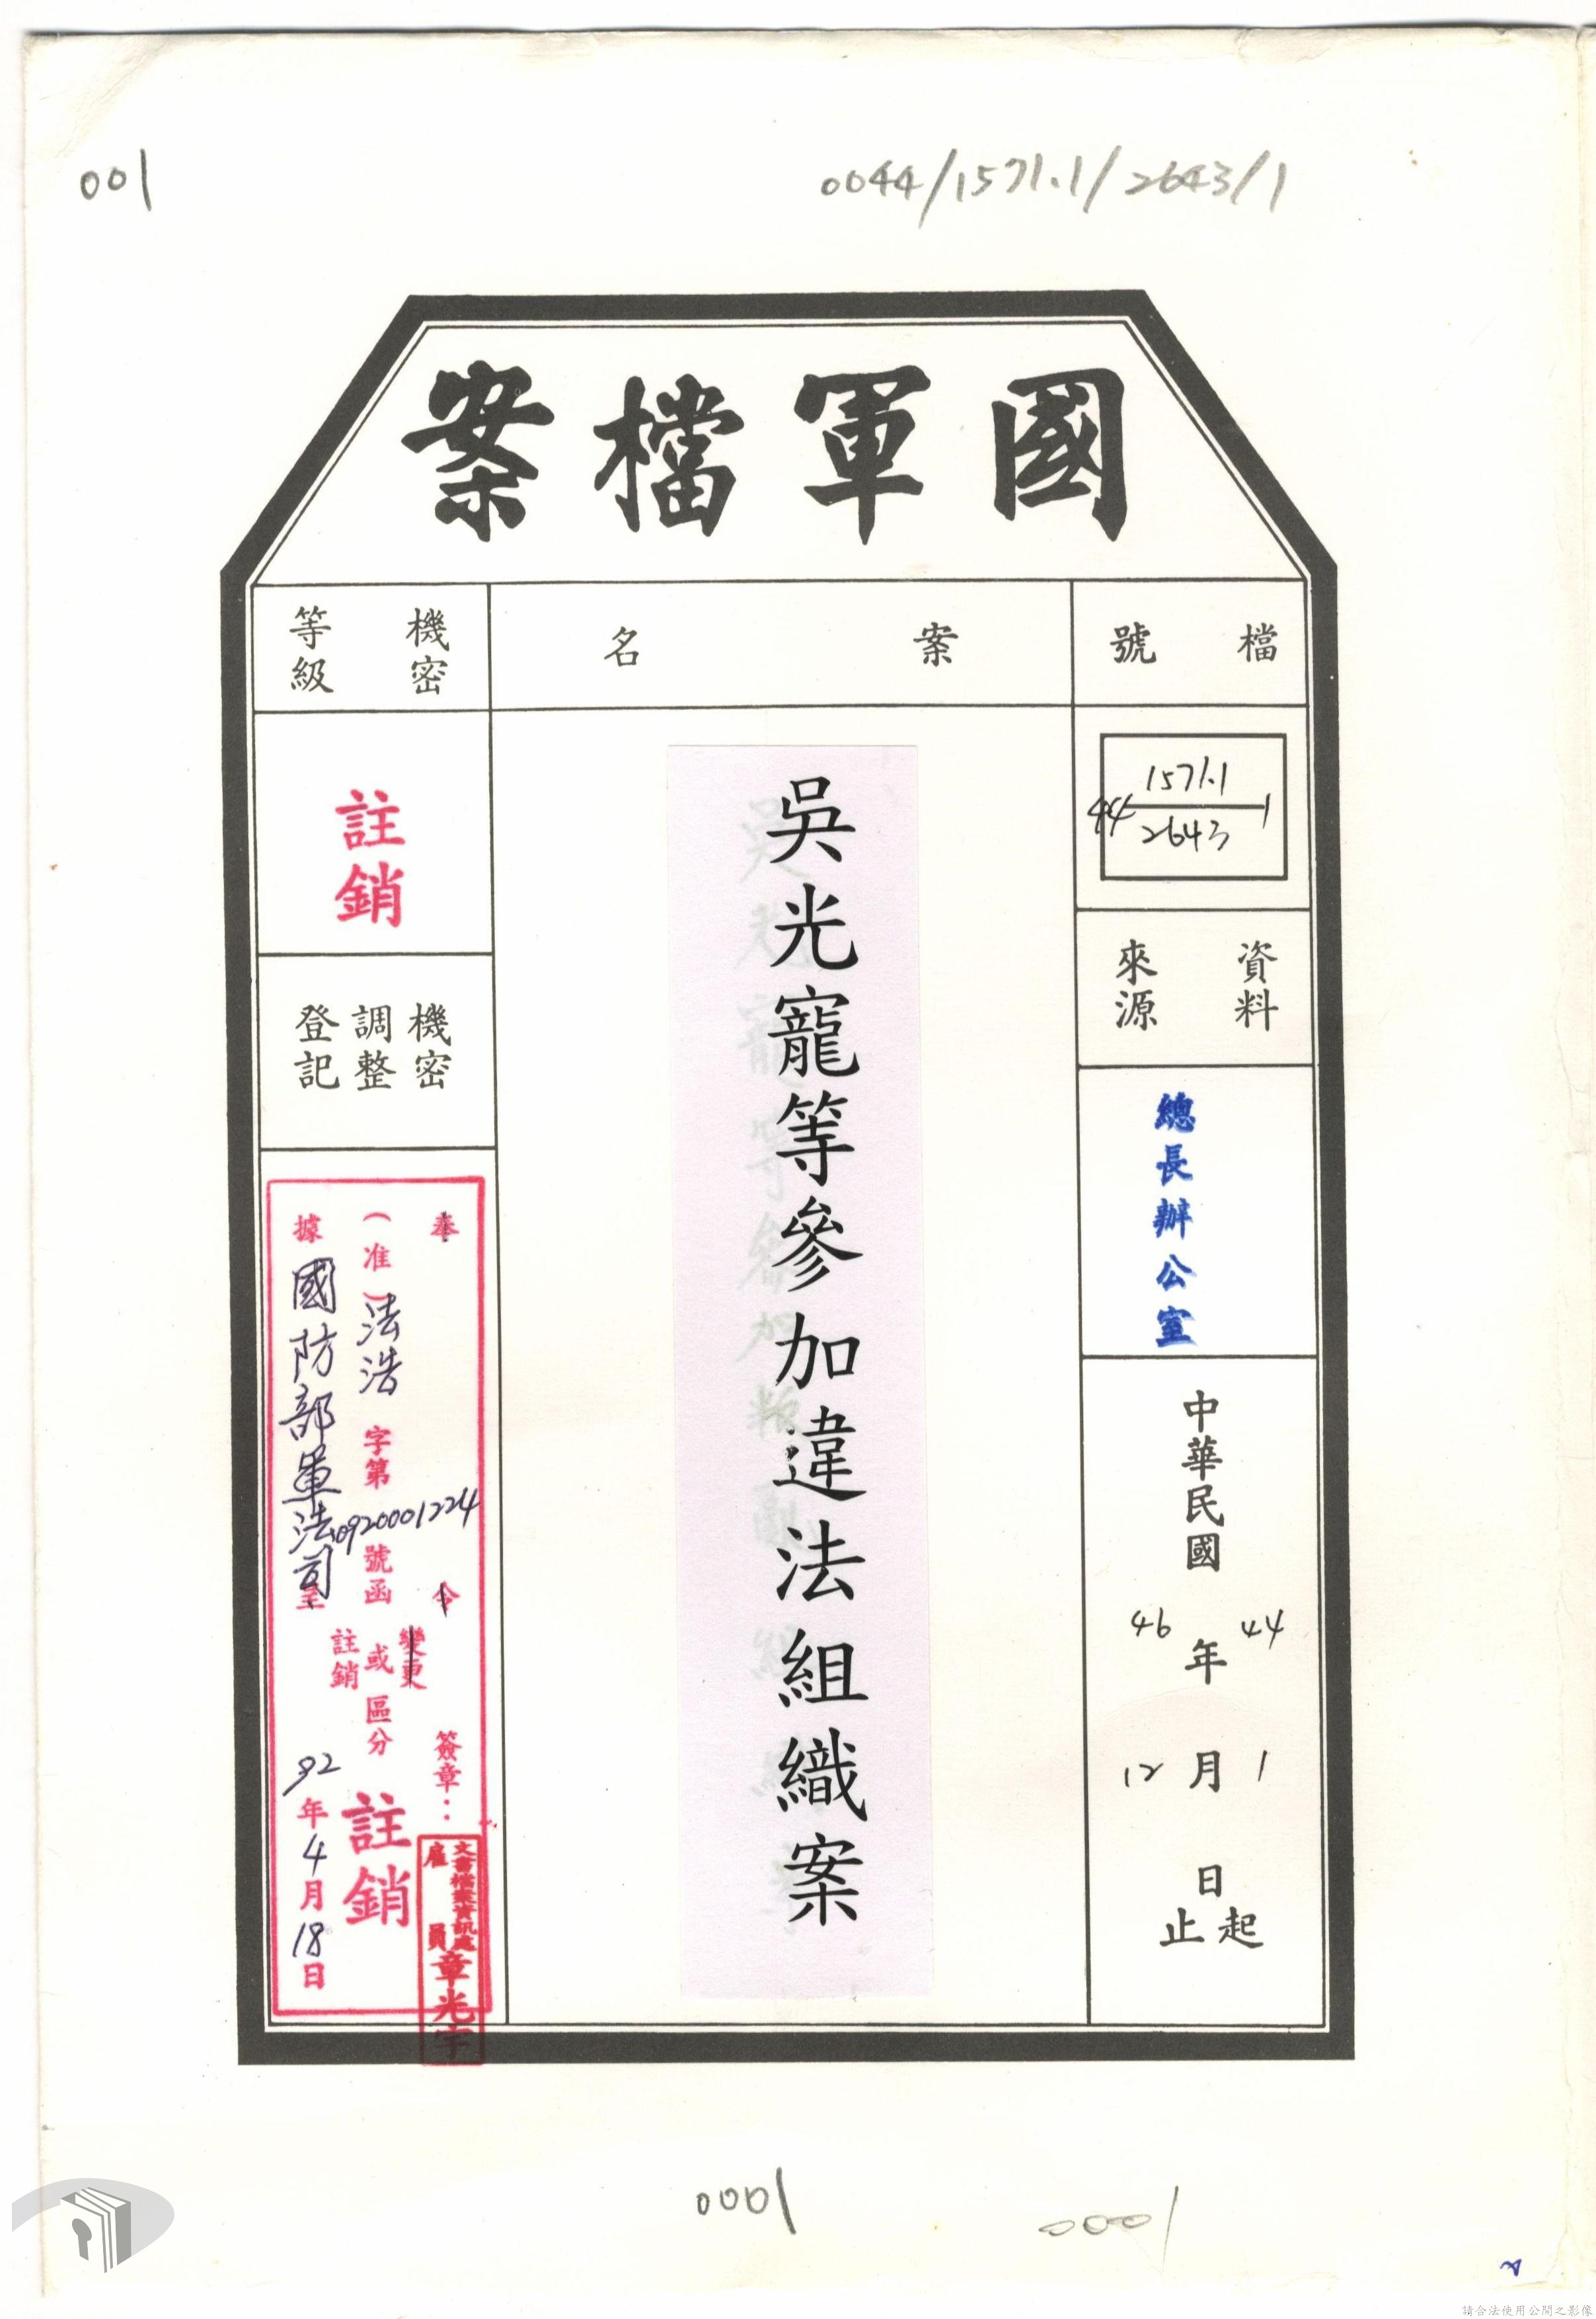 001
0044/1571.1/2643/1
國軍檔案
檔號
案名
機密等級
1571.1
44 1
2643
資料來源
總長辦公室
中華民國
44年1月日起
46年12月日止
吳光寵等參加違法組織案
註銷
機密調整登記
奉令
(准)法浩字第0920001224號函
據國防部軍法司
變更或註銷區分
註銷
簽章：
92年4月18日
文書檔案資訊處
雇員章光宇
0001
0001
請合法使用公開之影像